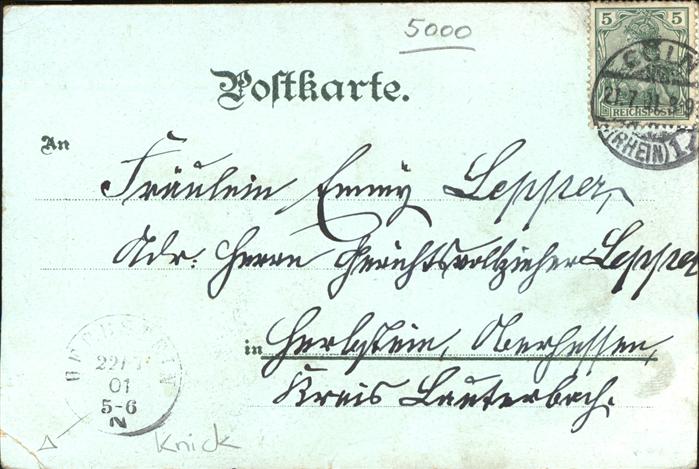 5000
5 5
REICHSPOST
CÖLN
(RHEIN) 1
Postkarte.
An
Fräulein Emmy Lepper,
Adr: Herrn Gerichtsvollzieher Lepper
in Herbstein, Oberhessen,
Kreis Lauterbach.
01
5-6
N
Knick